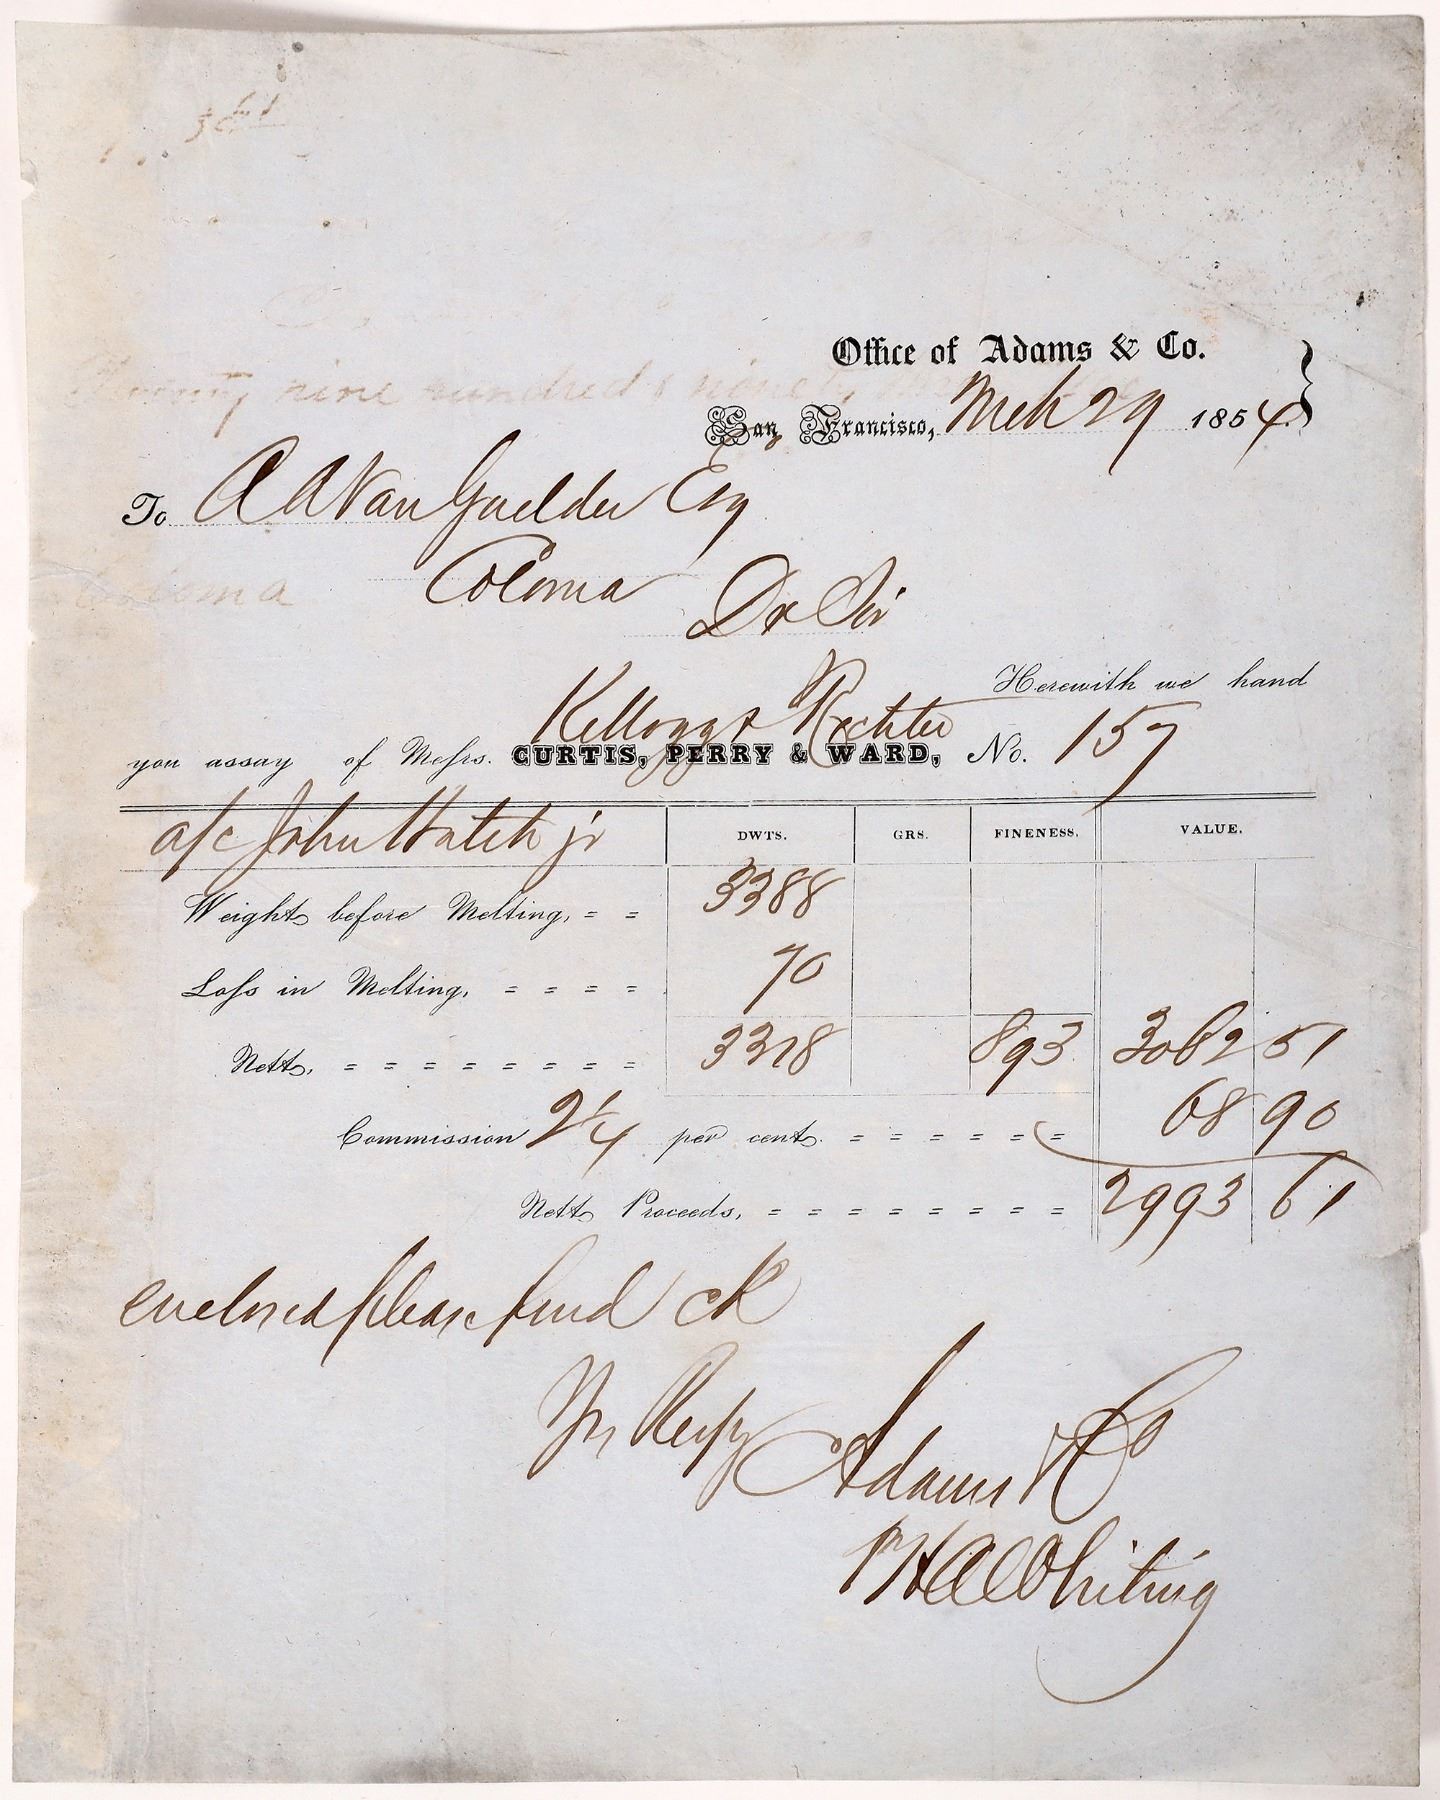 Office of Adams & Co.
San Francisco, Mch 29 1854
To A A Van Guelder Esq
Coloma
Dr Sir
Herewith we hand
Kellogg & Richter
you assay of Messrs. CURTIS, PERRY & WARD, No. 157
a/c John Hatch jr DWTS. GRS. FINENESS. VALUE.
Weight before Melting, = = 3388
Loss in Melting, = = = = 70
Nett, = = = = = = = = 3318 893 3062 51
Commission 2 1/4 per cent. = = = = = = 68 90
Nett Proceeds, = = = = = = = = 2993 61
enclosed please find ck
Yrs Respy Adams & Co
P H A Whiting